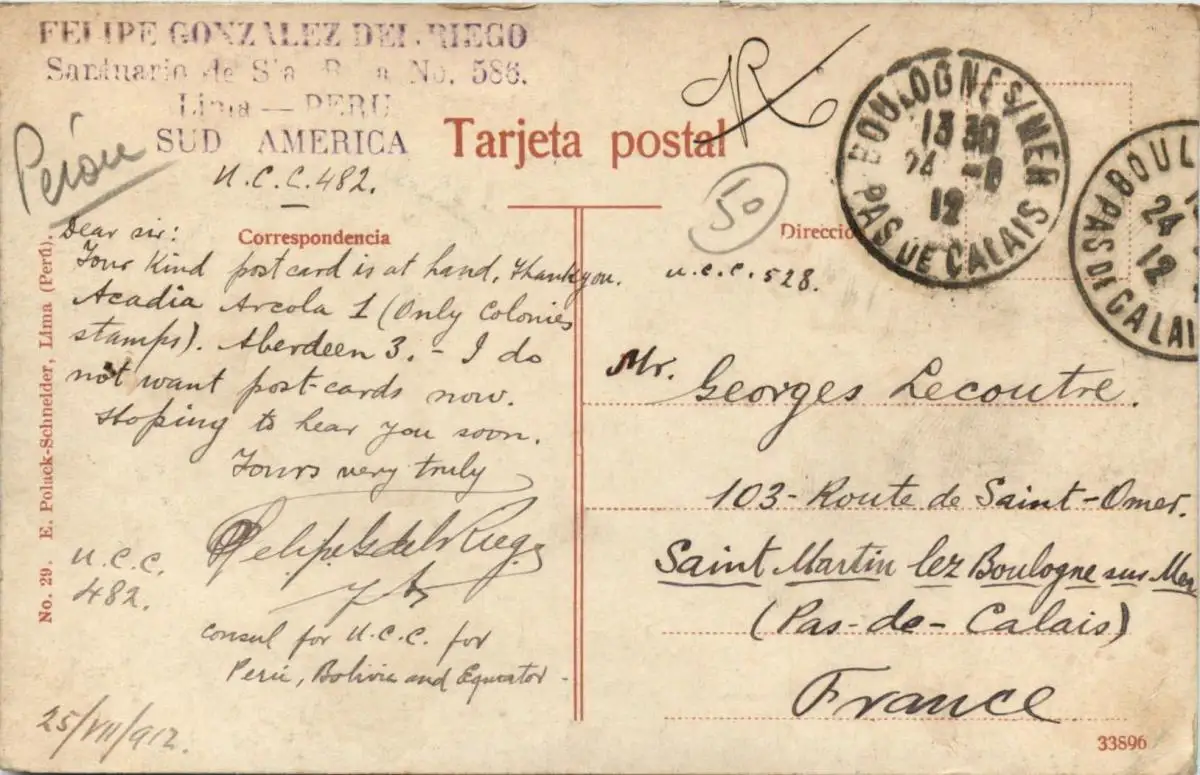 FELIPE GONZALEZ DEL RIEGO
Santuario de Sta Rosa No. 586.
Lima — PERU
SUD AMERICA
U.C.C. 482.
Perú
Tarjeta postal
R
50
BOULOGNE S/MER
13 30
24 -8
12
PAS DE CALAIS
BOUL
24
12
PAS DE CALAI
Correspondencia
Direcció
Dear sir:
Your Kind postcard is at hand, thank you.
Acadia Arcola 1 (Only Colonies
stamps). Aberdeen 3. - I do
not want post-cards now.
Hoping to hear you soon.
Yours very truly
Felipe G del Riego
U.C.C.
482.
Consul for U.C.C. for
Perú, Bolivia and Equator -
25/VII/912.
u.c.c. 528.
Mr. Georges Lecoutre.
103 - Route de Saint-Omer.
Saint Martin lez Boulogne sur Mer
(Pas-de-Calais)
France
No. 29. E. Polack-Schneider, Lima (Perú).
33896